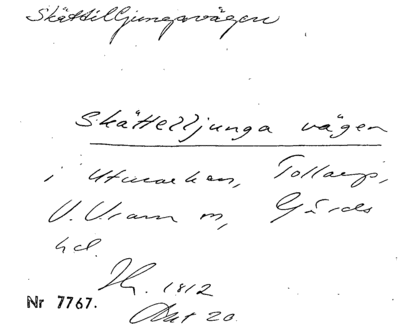 Skättilljungavägen
Skättelljunga vägen
i Utmarken, Tollarp,
V. Vram m, Gärds
hd.
1812
Akt 20.
Nr 7767.